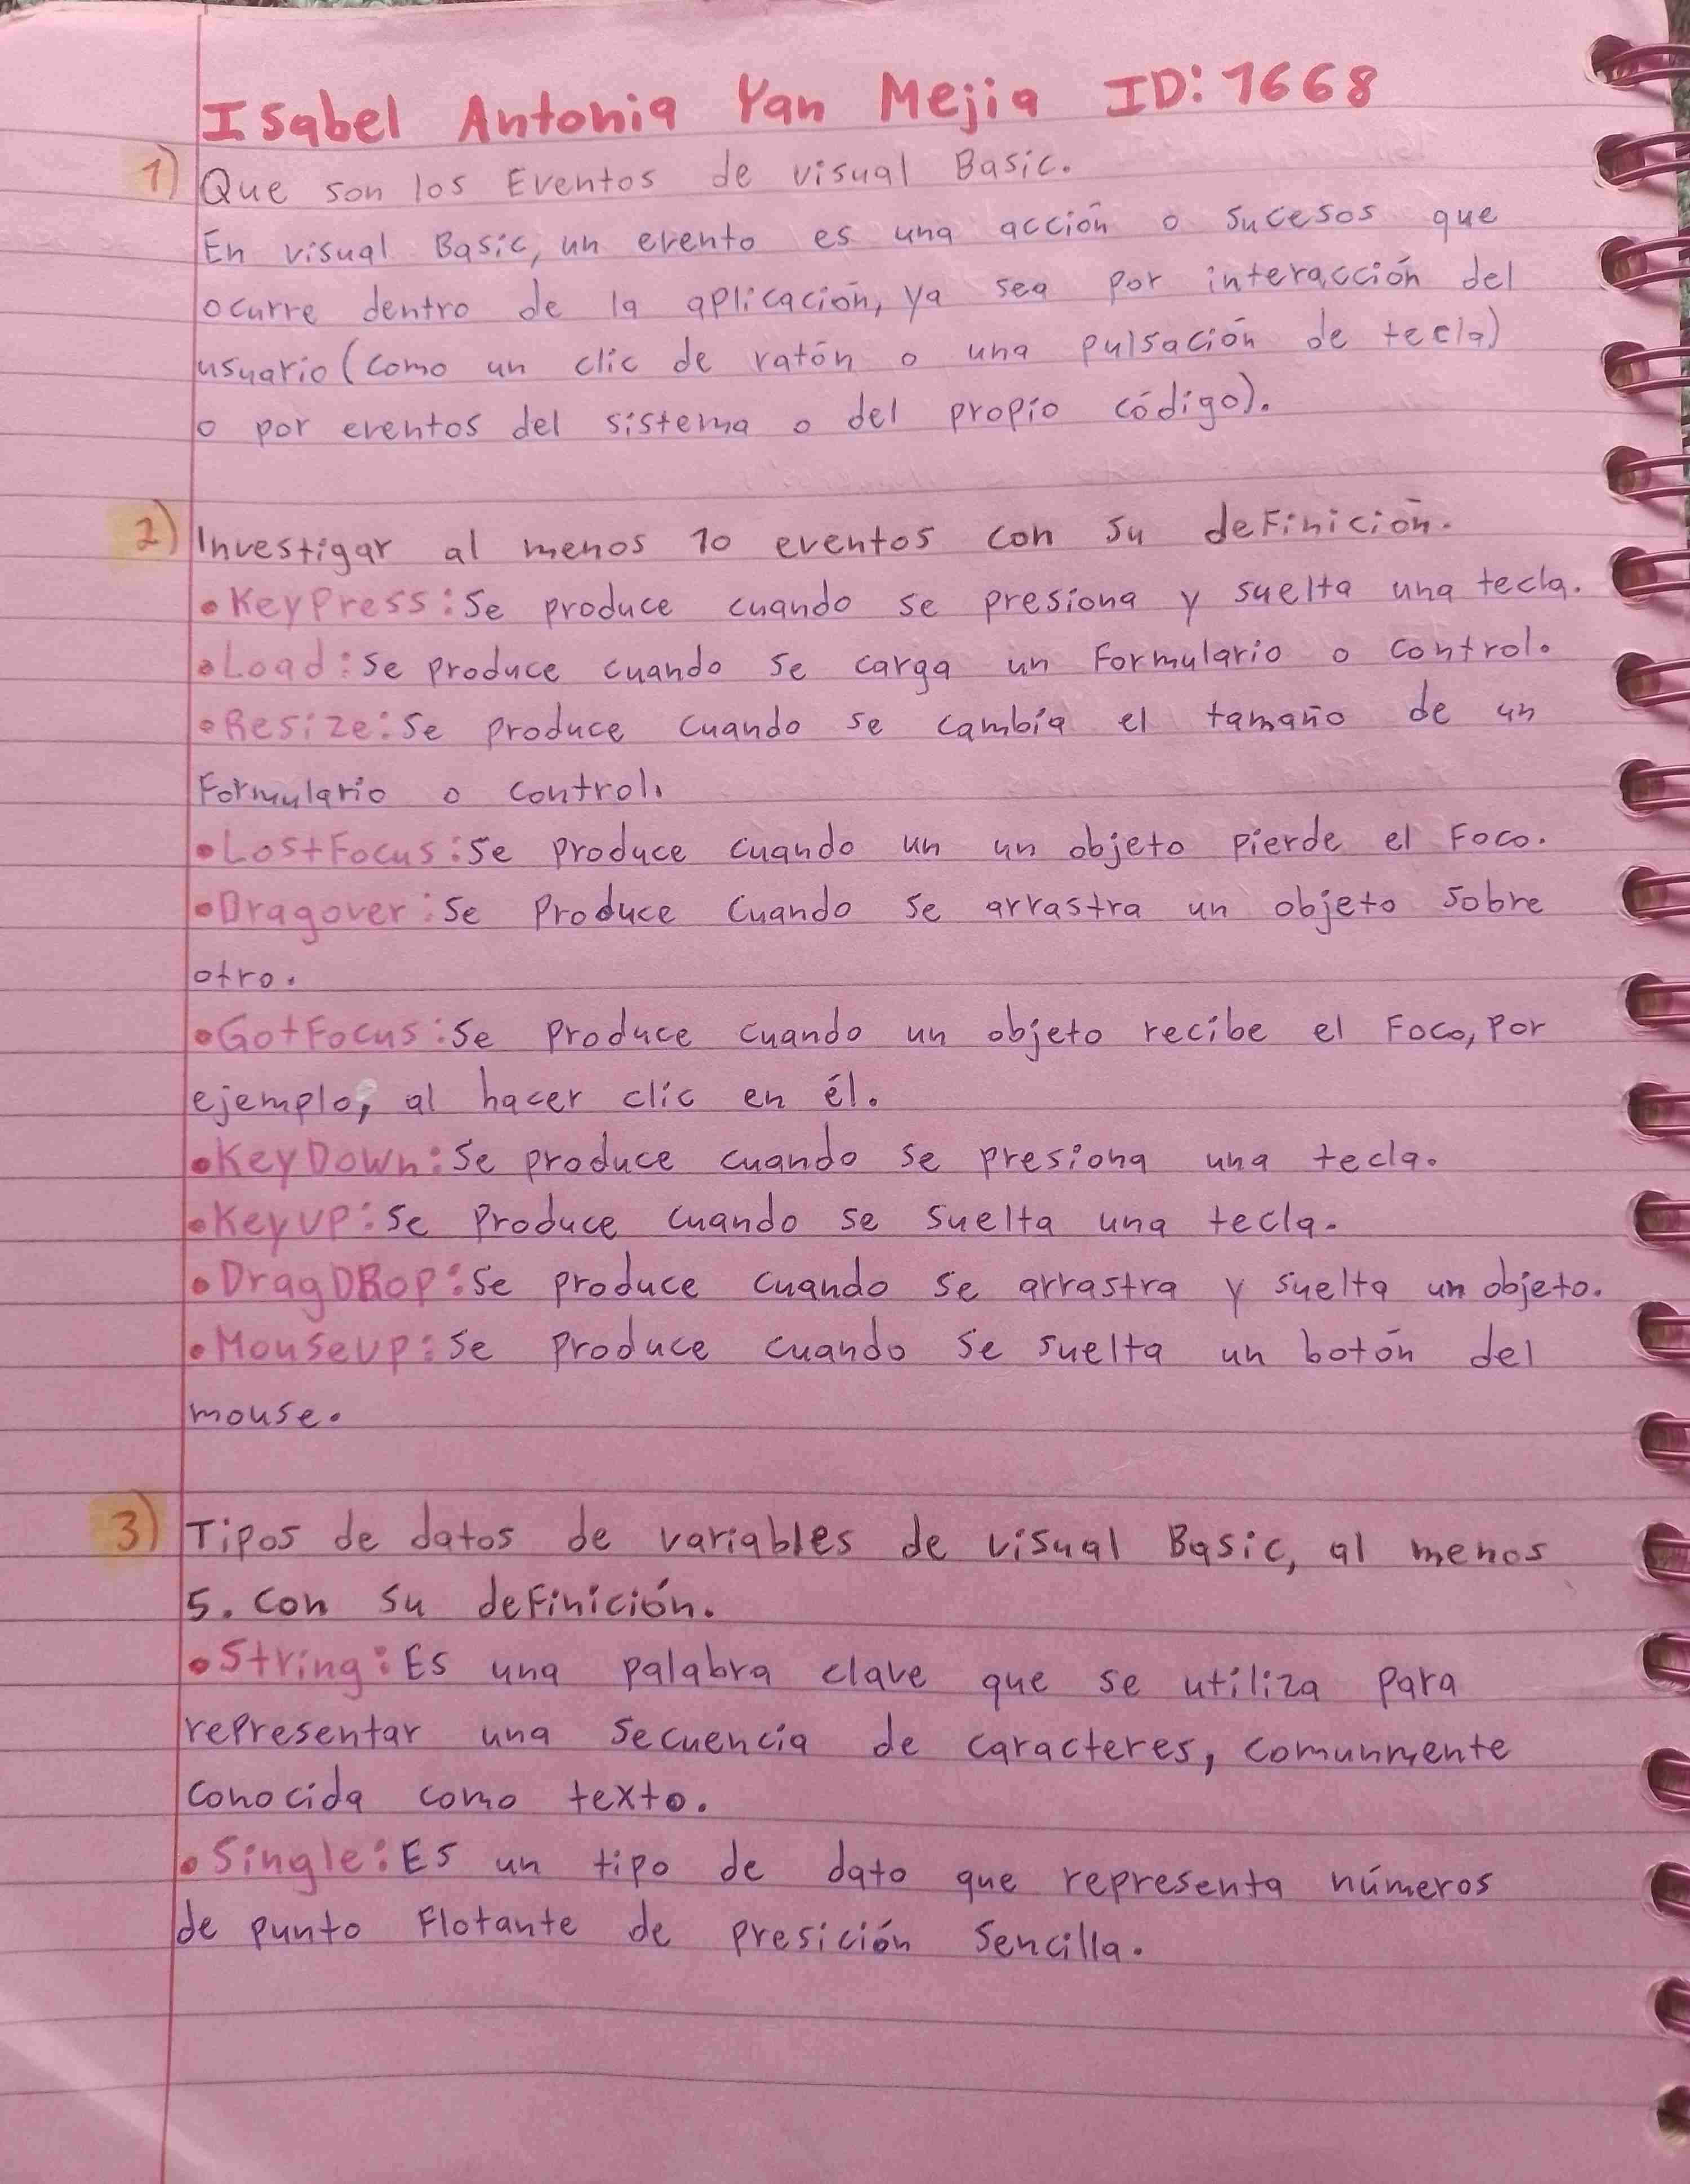 Isabel Antonia Yan Mejia ID: 1668
1) Que son los Eventos de visual Basic.
En visual Basic, un evento es una acción o sucesos que
ocurre dentro de la aplicación, ya sea por interacción del
usuario (como un clic de ratón o una pulsación de tecla)
o por eventos del sistema o del propio código).
2) Investigar al menos 10 eventos con su definición.
• KeyPress: Se produce cuando se presiona y suelta una tecla.
• Load: Se produce cuando se carga un Formulario o control.
• Resize: Se produce cuando se cambia el tamaño de un
Formulario o control.
• LostFocus: Se produce cuando un un objeto pierde el Foco.
• Dragover: Se Produce Cuando se arrastra un objeto sobre
otro.
• GotFocus: Se Produce cuando un objeto recibe el Foco, por
ejemplo, al hacer clic en él.
• KeyDown: Se produce cuando se presiona una tecla.
• KeyUP: Se Produce cuando se suelta una tecla.
• DragDRop: Se produce cuando se arrastra y suelta un objeto.
• MouseUp: Se Produce cuando se suelta un botón del
mouse.
3) Tipos de datos de variables de visual Basic, al menos
5. Con su definición.
• String: Es una palabra clave que se utiliza para
representar una secuencia de caracteres, comunmente
conocida como texto.
• Single: Es un tipo de dato que representa números
de punto Flotante de presición sencilla.